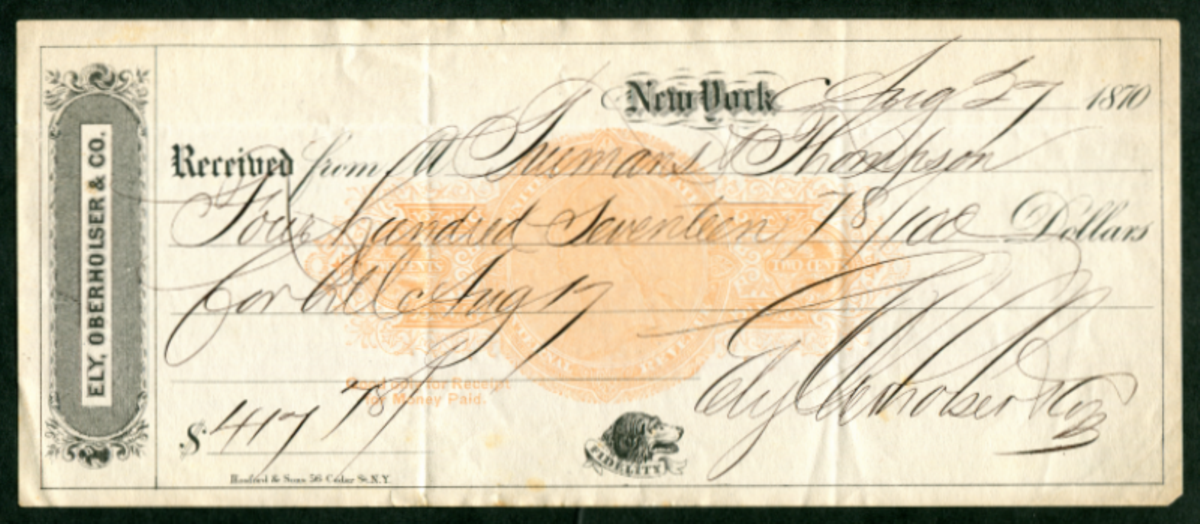 ELY, OBERHOLSER & CO.
New York Aug 27 1870
Received from M Truman & Thompson
Four hundred Seventeen 78/100 Dollars
for bill Aug 17
TWO CENTS
Good only for Receipt
for Money Paid.
$ 417 78/
Ely Oberholser & Co
FIDELITY
56 Cedar St. N.Y.